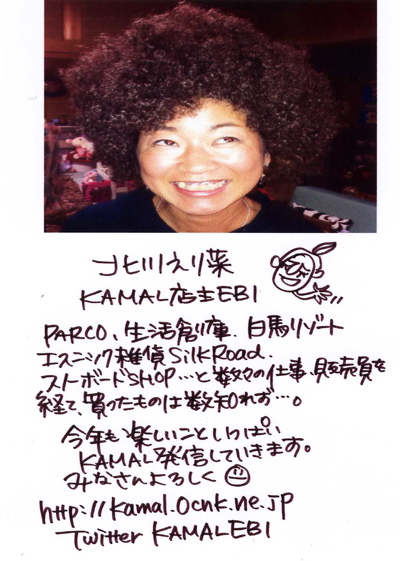 北川えり菜
KAMAL店主EBI
PARCO、生活創庫、白馬リゾート
エスニック雑貨SilkRoad.
ストボードSHOP…と数々の仕事、販売員を
経て、買ったものは数知れず…。
今年も楽しいこといっぱい
KAMAL発信していきます。
みなさんよろしく
http://kamal.ocnk.ne.jp
Twitter KAMALEBI